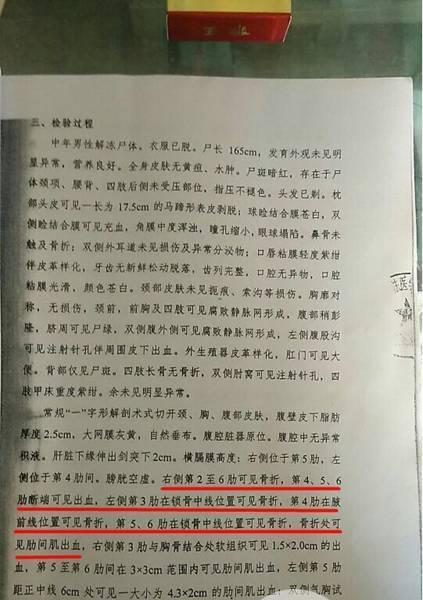 三、检验过程
中年男性解冻尸体。衣服已脱。尸长 165cm，发育外观未见明
显异常，营养良好。全身皮肤无黄疸、水肿。尸斑暗红，存在于尸
体颈项、腰背、四肢后侧未受压部位，指压不褪色。头发已剃。枕
部头皮可见一长为 17.5cm 的马蹄形表皮剥脱；球睑结合膜苍白，双
侧睑结合膜可见充血，角膜中度浑浊，瞳孔缩小，眼球塌陷。鼻骨未
触及骨折；双侧外耳道未见损伤及异常分泌物；口唇粘膜轻度紫绀
伴皮革样化，牙齿无新鲜松动脱落，齿列完整，口腔无异物，口腔
粘膜光滑，颜色苍白。颈部皮肤未见扼痕、索沟等损伤。胸廓对
称，无损伤，颈前，前胸及四肢可见腐败静脉网形成，腹部稍彭
隆，脐周可见尸绿，双侧腹外侧可见腐败静脉网形成，左侧腹股沟
可见注射针孔伴周围皮下出血。外生殖器皮革样化，肛门可见大
便。背部仅见尸斑。四肢长骨无骨折，双侧肘窝可见注射针孔，四
肢甲床重度紫绀。余未见明显异常。
常规“一”字形解剖术式切开颈、胸、腹部皮肤，腹壁皮下脂肪
厚度 2.5cm，大网膜灰黄，自然垂布。腹腔脏器原位。腹腔中无异常
积液。肝脏下缘伸出剑突下 2cm。横膈膜高度：右侧位于第 5 肋，左
侧位于第 4 肋间。膀胱空虚。右侧第 2 至 6 肋可见骨折，第 4、5、6
肋断端可见出血，左侧第 3 肋在锁骨中线位置可见骨折，第 4 肋在腋
前线位置可见骨折，第 5、6 肋在锁骨中线位置可见骨折，骨折处可
见肋间肌出血，右侧第 3 肋与胸骨结合处软组织可见 1.5×2.0cm 的出
血，第 5 至第 6 肋间在 3×3cm 范围内可见肋间肌出血，左侧第 5 肋
距正中线 6cm 处可见一大小为 4.3×2cm 的肋间肌出血；双侧气胸试